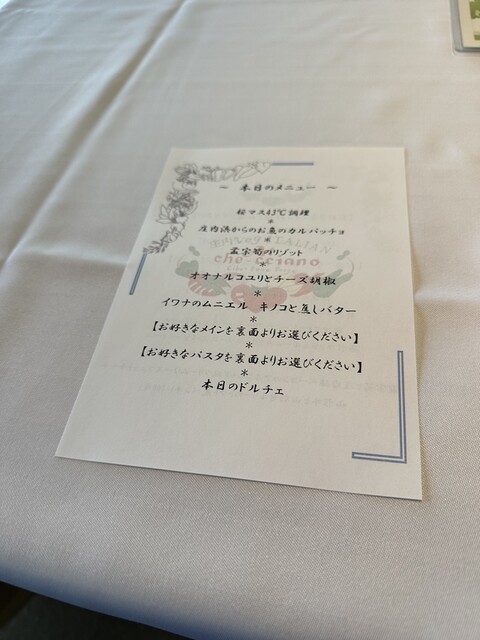 ～ 本日のメニュー ～
桜マス43℃調理
＊
庄内浜からのお魚のカルパッチョ
＊
孟宗筍のリゾット
＊
オオナルコユリとチーズ胡椒
＊
イワナのムニエル キノコと蒸しバター
＊
【お好きなメインを裏面よりお選びください】
＊
【お好きなパスタを裏面よりお選びください】
＊
本日のドルチェ